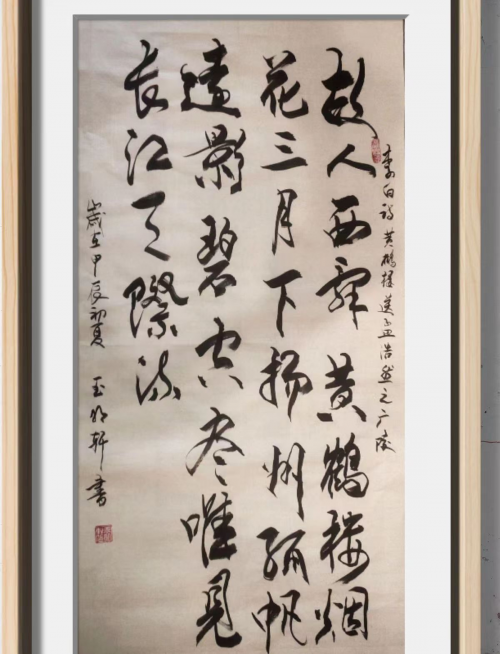 李白诗黄鹤楼送孟浩然之广陵
故人西辞黄鶴楼烟
花三月下扬州孤帆
遠影碧空尽唯見
长江天際流
歲在甲辰初夏 玉明轩書